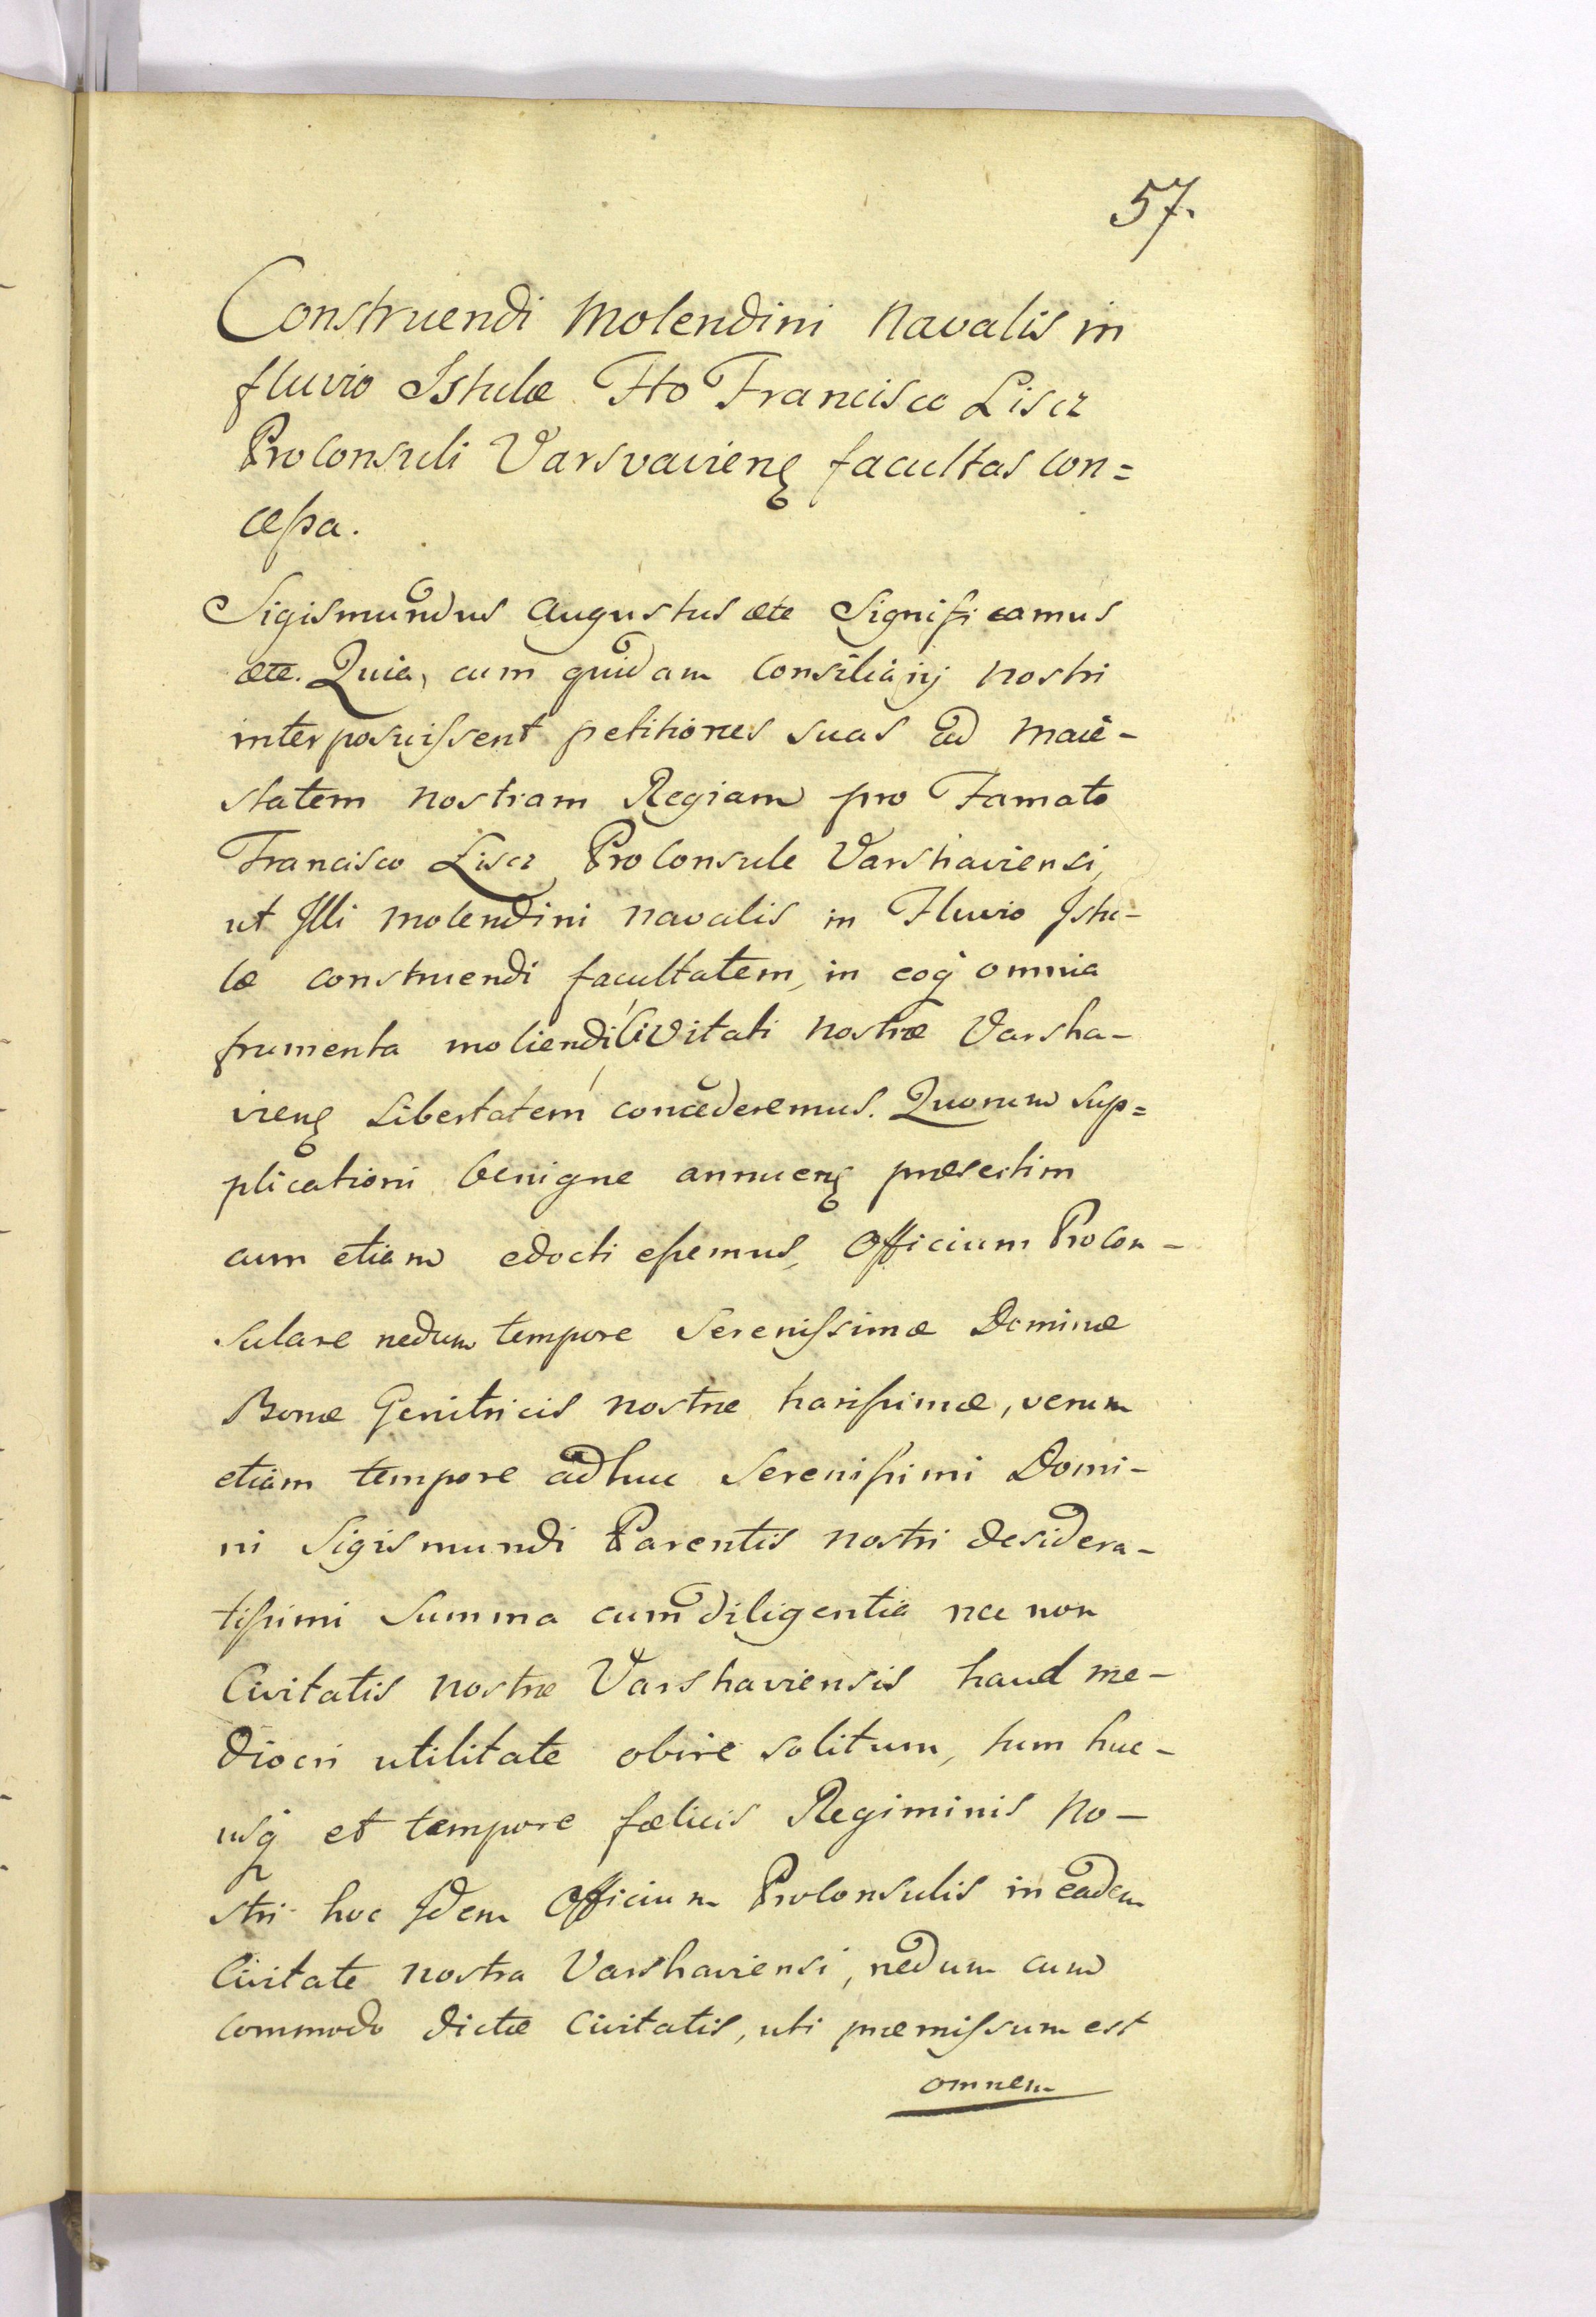 57.
Construendi Molendini Navalis in
fluvio Istulæ Fto Francisco Liscz
Proconsuli Varsvavienȩ facultas con=
cessa.
Sigismundus Augustus etc Significamus
etc. Quia, cum quidam Consiliarij nostri
interposuissent petitiones suas ad Maie-
statem nostram Regiam pro Famato
Francisco Liscz Proconsule Varshaviensi,
ut Illi molendini navalis in Fluvio Istu-
læ construendi facultatem, in eoq omnia
frumenta moliendi Civitati nostræ Varsha-
vienȩ Libertatem concederemus. Quorum sup=
plicationi benigne annuenȩ præsertim
cum etiam edocti essemus, Officium Procon-
sulare nedum tempore Serenissimæ Dominæ
Bonæ Genitricis nostræ harissimæ, verum
etiam tempore adhuc Serenissimi Domi-
ni Sigismundi Parentis nostri desidera-
tissimi Summa cum diligentia nec non
Civitatis nostræ Varshaviensis haud me-
diocri utilitate obire solitum, tum huc-
usq et tempore fœlicis Regiminis no-
stri hoc Idem Officium Proconsulis in eadem
Civitate nostra Varshaviensi, nedum cum
commodo dictæ Civitatis, uti præmissum est
omnem